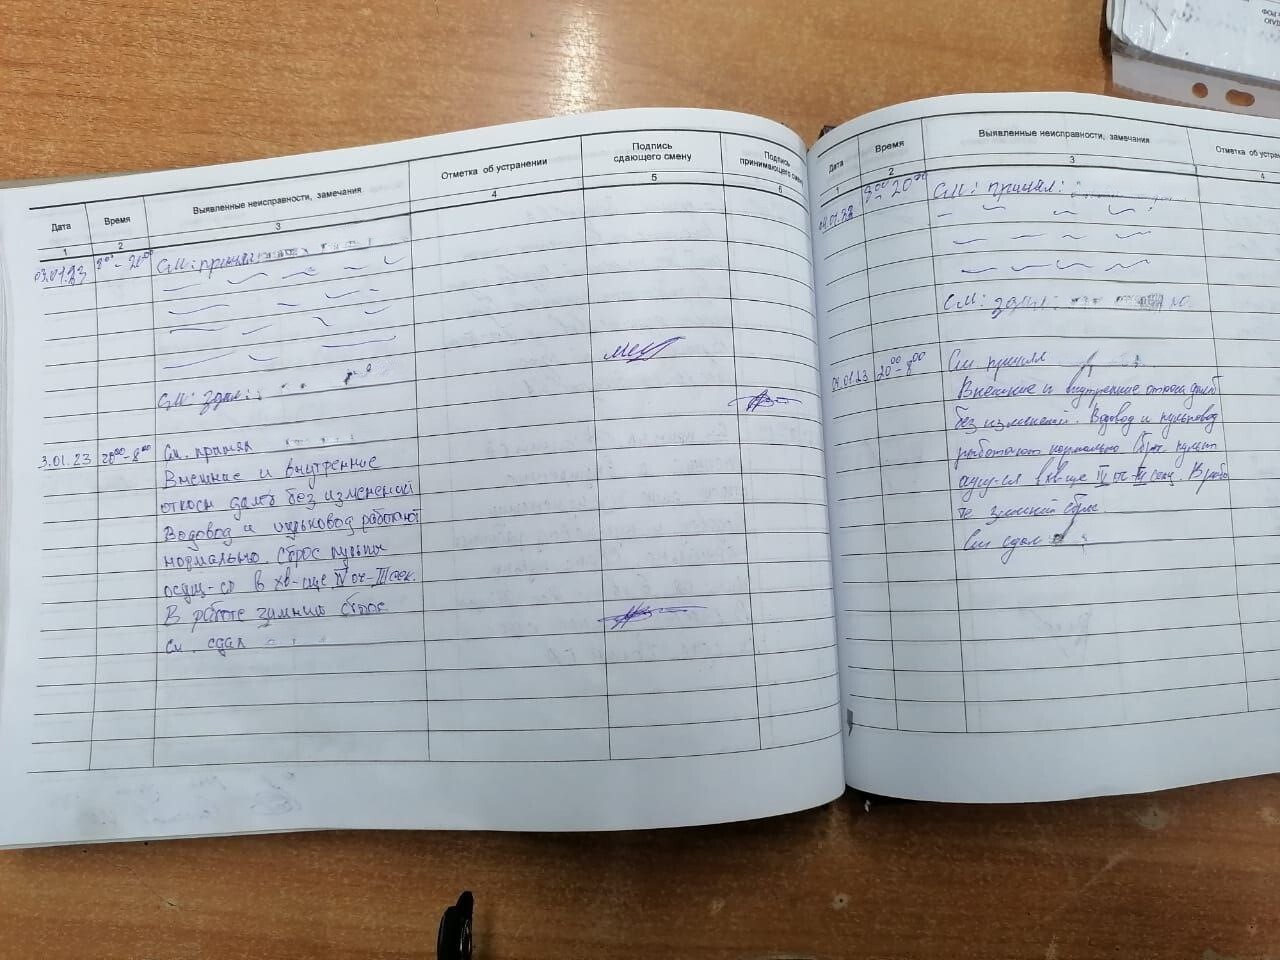 Дата Время Выявленные неисправности, замечания Отметка об устранении Подпись сдающего смену Подпись принимающего смену
1 2 3 4 5 6
03.01.23 8⁰⁰-20⁰⁰ См: принял
См: сдал:
3.01.23 20⁰⁰-8⁰⁰ См. принял
Внешние и внутренние
откосы дамб без изменений
Водовод и пульповод работают
нормально. Сброс пульпы
осущ-ся в хв-ще IV оч-III сек.
В работе зимний сброс
См. сдал
Дата Время Выявленные неисправности, замечания
1 2 3 4
04.01.23 8⁰⁰ 20⁰⁰ См: принял:
См: сдал:
04.01.23 20⁰⁰-8⁰⁰ См. принял
Внешние и внутренние откосы дамб
без изменений. Водовод и пульповод
работают нормально. Сброс пульпы
осущ-ся в хв-ще IV оч-III секц. В рабо
те зимний сброс.
См сдал